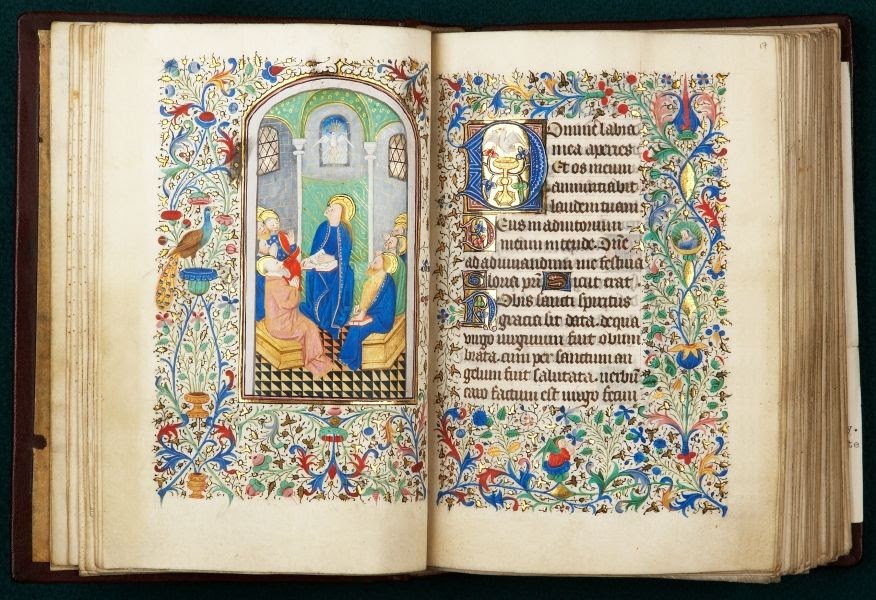 17
Domine labia
mea aperies
Et os meum
annuntiabit
laudem tuam
Deus in adiutorium
meum intende. Dn̄e
ad adiuvandum me festina
Gloria pr̄i Sicut erat
Nobis sancti spiritus
gracia sit data. de qua
virgo virginum fuit obum
brata. cum per sanctum an
gelum fuit salutata. verbū
caro factum est virgo fecun
y.
te